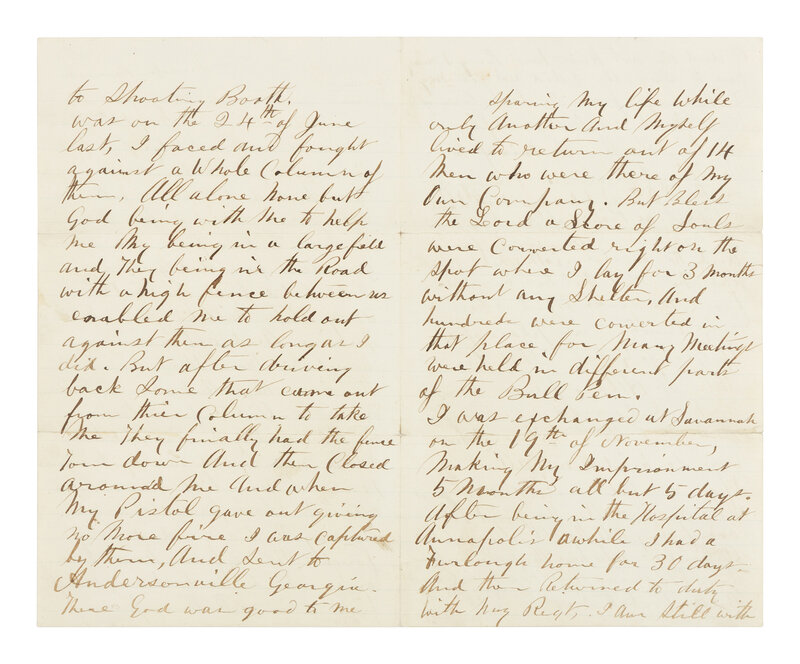 to Shooting Booth.
was on the 24th of June
last, I faced and fought
against a Whole Column of
them, All alone None but
God being with Me to help
me My being in a large field
and They being in the Road
with a high fence between us
enabled me to hold out
against them as long as I
did. But after driving
back Some that came out
from thier Column to take
Me They finally had the fence
Torn down And then Closed
around me And when
My Pistol gave out giving
no More fire I was captured
by them, And Sent to
Andersonville Georgia.
There God was good to me
sparing My life While
only Another And Myself
lived to return out of 14
Men who were there of my
Own Company. But Bless
the Lord a Score of Souls
were Converted right on the
Spot where I lay for 3 months
without any Shelter, And
hundreds were converted in
that place for Many Meetings
were held in different parts
of the Bull Pen.
I was exchanged at Savannah
on the 19th of November,
Making My Imprisonment
5 Months all but 5 days.
After being in the Hospital at
Annapolis awhile I had a
Furlough home for 30 days-
And then Returned to duty
with my Regt. I am Still with